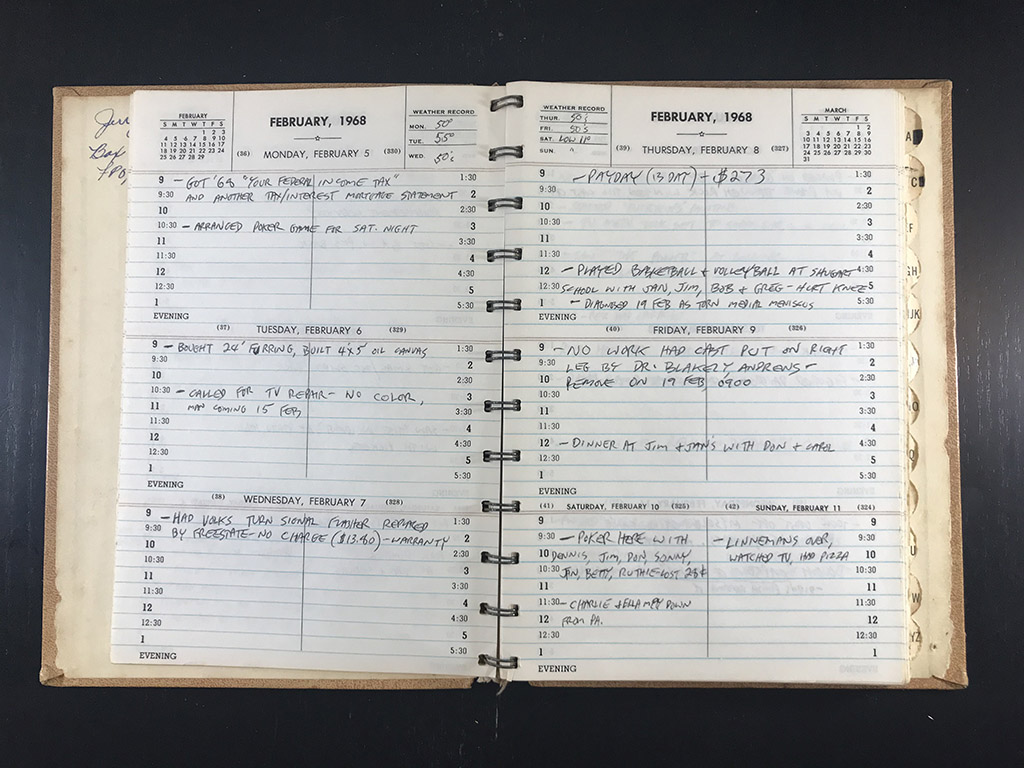 FEBRUARY
S M T W T F S
1 2 3
4 5 6 7 8 9 10
11 12 13 14 15 16 17
18 19 20 21 22 23 24
25 26 27 28 29
FEBRUARY, 1968
WEATHER RECORD
MON. 50°
TUE. 55°
WED. 50's
(36) MONDAY, FEBRUARY 5 (330)
9 - GOT '68 "YOUR FEDERAL INCOME TAX" 1:30
9:30 AND ANOTHER TAX/INTEREST MORTGAGE STATEMENT 2
10 2:30
10:30 - ARRANGED POKER GAME FOR SAT. NIGHT 3
11 3:30
11:30 4
12 4:30
12:30 5
1 5:30
EVENING
(37) TUESDAY, FEBRUARY 6 (329)
9 - BOUGHT 24' FURRING, BUILT 4'x5' OIL CANVAS 1:30
9:30 2
10 2:30
10:30 - CALLED FOR TV REPAIR - NO COLOR, 3
11 MAN COMING 15 FEB 3:30
11:30 4
12 4:30
12:30 5
1 5:30
EVENING
(38) WEDNESDAY, FEBRUARY 7 (328)
9 - HAD VOLKS TURN SIGNAL FLASHER REPLACED 1:30
9:30 BY FREESTATE - NO CHARGE ($13.80) - WARRANTY 2
10 2:30
10:30 3
11 3:30
11:30 4
12 4:30
12:30 5
1 5:30
EVENING
WEATHER RECORD
THUR. 50's
FRI. 50's
SAT. LOW
SUN. "
FEBRUARY, 1968
MARCH
S M T W T F S
1 2
3 4 5 6 7 8 9
10 11 12 13 14 15 16
17 18 19 20 21 22 23
24 25 26 27 28 29 30
31
(39) THURSDAY, FEBRUARY 8 (327)
9 - PAYDAY (13 DAY) + $273 1:30
9:30 2
10 2:30
10:30 3
11 3:30
11:30 4
12 - PLAYED BASKETBALL & VOLLEYBALL AT SHUGART 4:30
12:30 SCHOOL WITH JAN, JIM, BOB & GREG - HURT KNEE 5
1 - DIAGNOSED 19 FEB AS TORN MEDIAL MENISCUS 5:30
EVENING
(40) FRIDAY, FEBRUARY 9 (326)
9 - NO WORK HAD CAST PUT ON RIGHT 1:30
9:30 LEG BY DR. BLAKELY, ANDREWS - 2
10 REMOVE ON 19 FEB, 0900 2:30
10:30 3
11 3:30
11:30 4
12 - DINNER AT JIM & JAN'S WITH DON & CAROL 4:30
12:30 5
1 5:30
EVENING
(41) SATURDAY, FEBRUARY 10 (325) (42) SUNDAY, FEBRUARY 11 (324)
9 9
9:30 - POKER HERE WITH - LINNEMANS OVER, 9:30
10 DENNIS, JIM, DON, SONNY, WATCHED TV, HAD PIZZA 10
10:30 JAN, BETTY, RUTHIE LOST 28¢ 10:30
11 11
11:30 - CHARLIE & ELLA DOWN 11:30
12 FROM PA. 12
12:30 12:30
1 1
EVENING
A
C
EF
GH
IJK
O
U
W
YZ